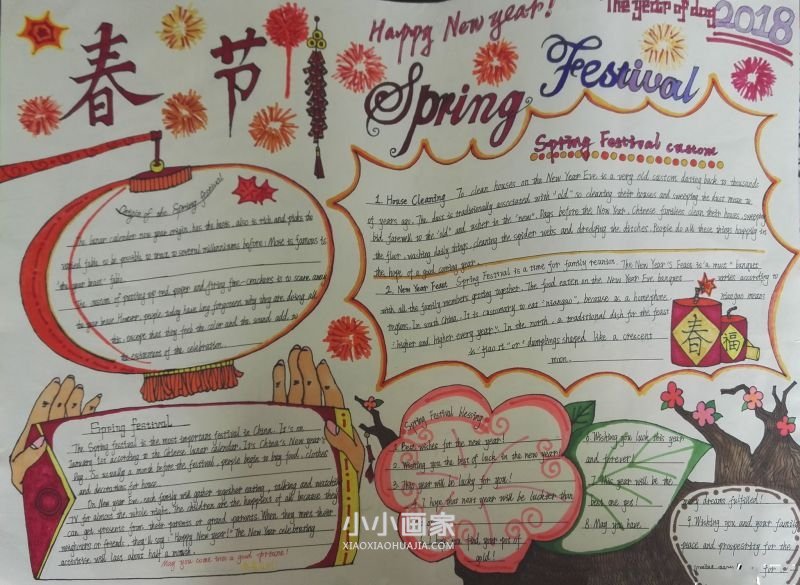 春节
Happy New year!
The year of dog
2018
Spring Festival
Spring Festival custom
1. House Cleaning To clean houses on the New Year Eve is a very old custom dating back to thousands
of years ago. The dust is traditionally associated with "old" so cleaning their houses and sweeping the dust mean to
bid farewell to the "old" and usher in the "new". Days before the New Year, Chinese families clean their houses, sweeping
the floor, washing daily things, cleaning the spider webs and dredging the ditches. People do all these things happily in
the hope of a good coming year.
2. New Year Feast Spring Festival is a time for family reunion. The New Year's Feast is a "must" banquet
with all the family members getting together. The food eaten on the New Year Eve banquet varies according to
regions. In south China, It is customary to eat "niangao", because as a homophone, niangao means
"higher and higher every year". In the north, a traditional dish for the feast
is "Jiao zi" or "dumplings shaped like a crescent
moon.
春
福
Origin of the Spring Festival
The lunar calendar new year origin, has the basis, also is rich and
varied fable so be possible to trace to several millenniums before. Most to famous is
"the year beast" fable.
The custom of pasting up red paper and firing fire-crackers is to scare away
the year beast However, people today have long forgotten why they are doing all
this, except that they feel the color and the sound add to
the excitement of the celebration.
Spring festival
The Spring festival is the most important festival in China. It's on
January 1st according to the Chinese lunar calendar. It's China's New year's
Day. So usually a month before the festival, people begin to buy food, clothes
and decorations for house.
On New year Eve, each family will gather together eating, talking and watching
TV for almost the whole night. The children are the happiest of all because they
can get presents from their parents or grand parents. When they meet their
neighbours or friends, they'll say "Happy New year!" The New Year celebrating
activities will last about half a month.
May you come into a good fortune!
Spring Festival blessing
1. Best wishes for the new year!
2. Wishing you the best of luck in the new year!
3. This year will be lucky for you!
4. I hope that next year will be luckier than
find your pot of
gold!
6. Wishing you luck this year
and forever!
7. This year will be the
best one yet!
8. May you have
every dreams fulfilled!
9. Wishing you and your family
peace and prosperity for the
for
小小画家
XIAOXIAOHUAJIA.COM